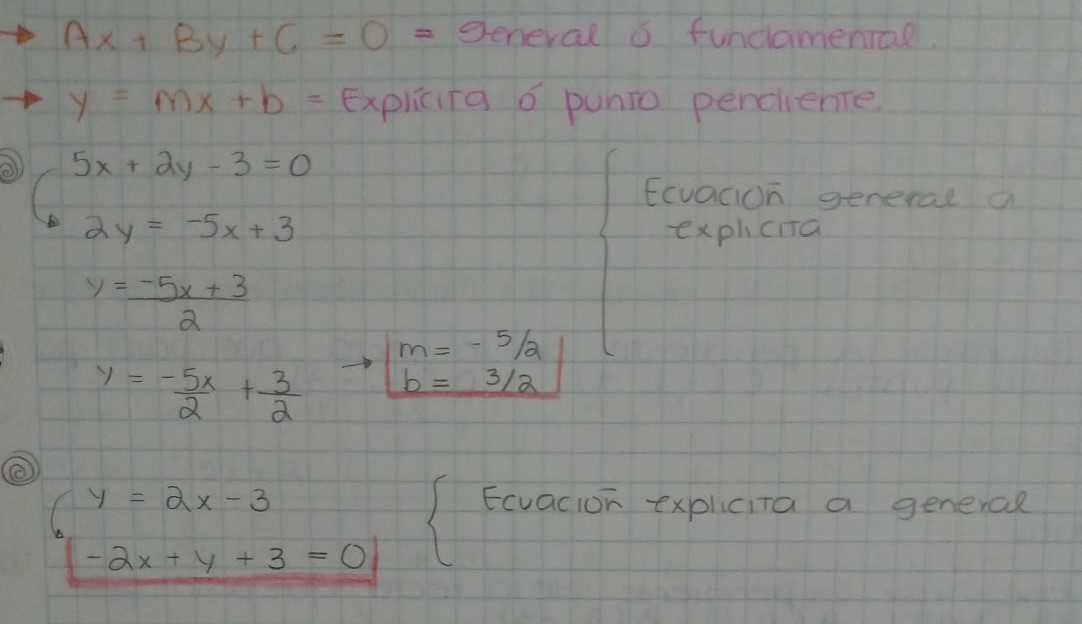 → Ax + By + C = 0 = general ó fundamental.
→ y = mx + b = Explícita ó punto pendiente.
5x + 2y - 3 = 0
2y = -5x + 3
y = -5x + 3
2
y = -5x/2 + 3/2 → m = - 5/2
b = 3/2
Ecuación general a
explicita
y = 2x - 3
-2x + y + 3 = 0
Ecuación explicita a general